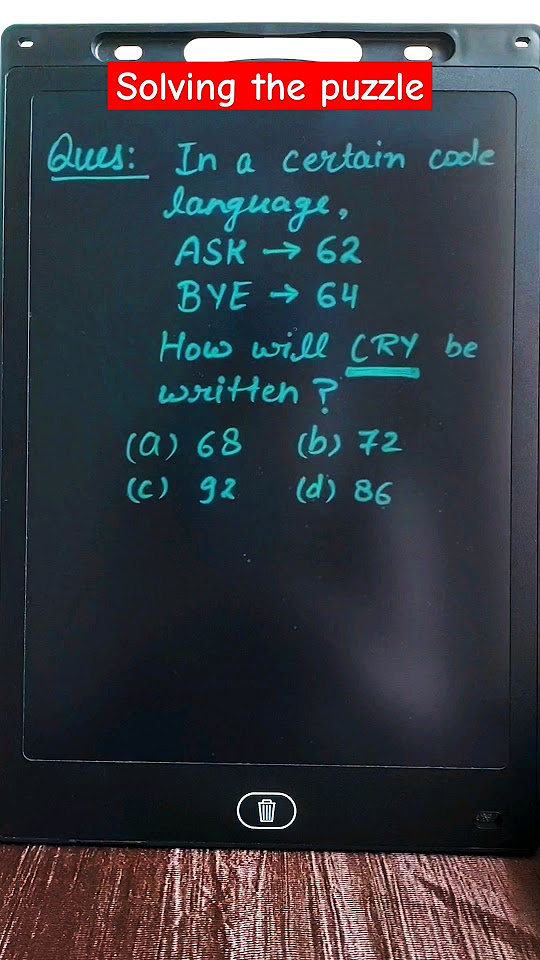 Solving the puzzle
Ques: In a certain code
language,
ASK → 62
BYE → 64
How will CRY be
written?
(a) 68 (b) 72
(c) 92 (d) 86